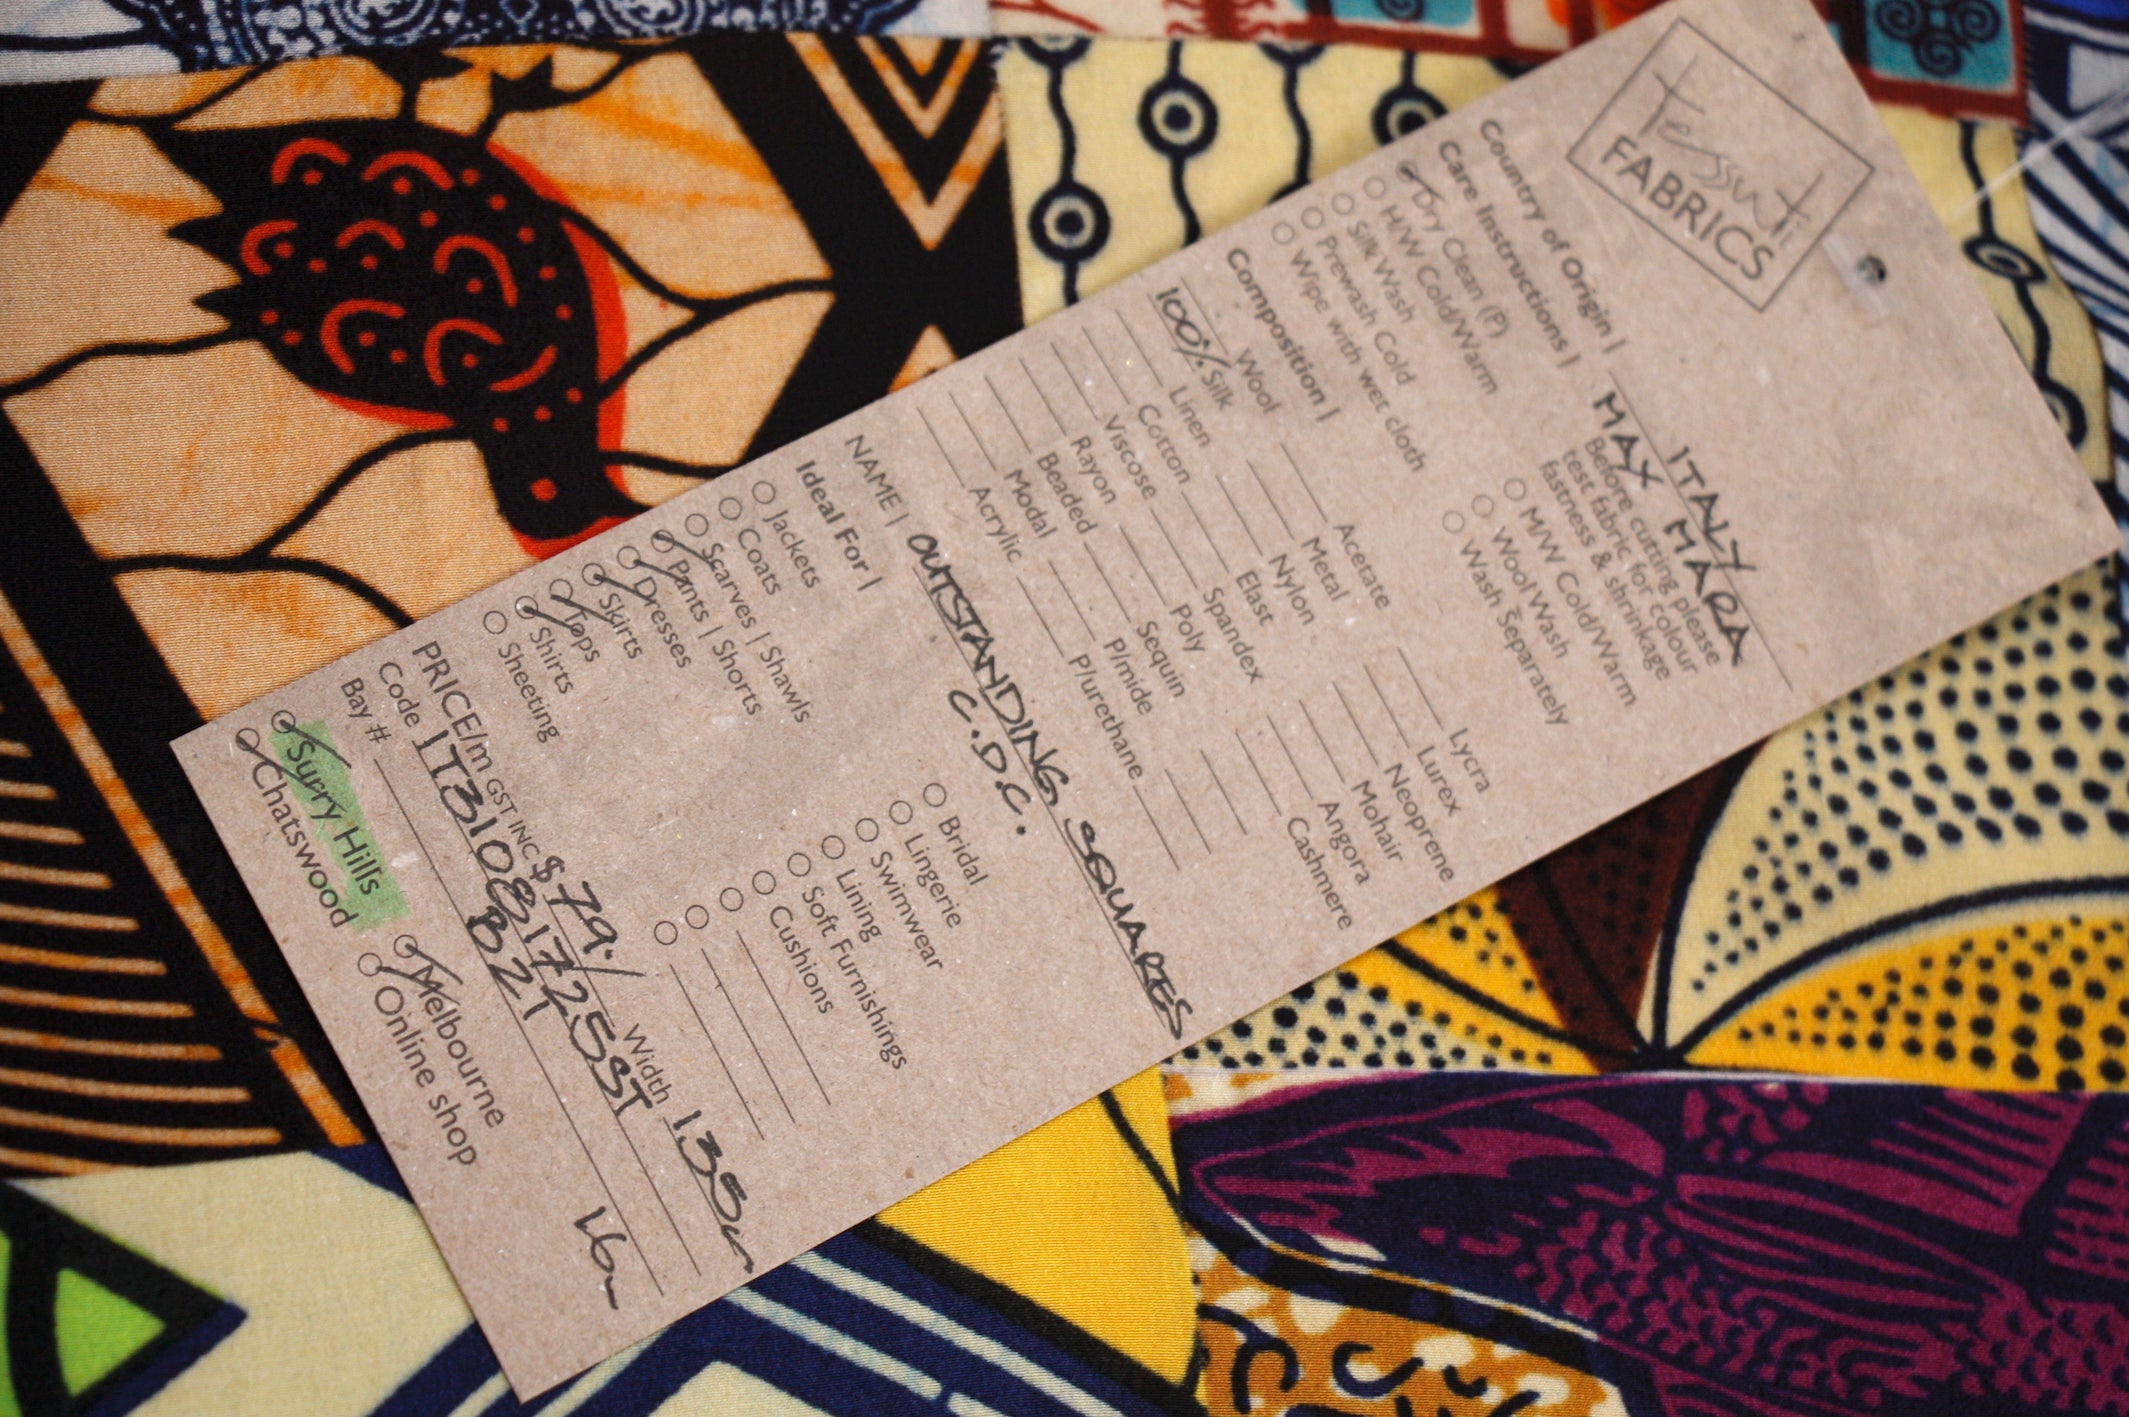 Tessuti
FABRICS
Country of Origin | ITALY
MAX MARA
Care Instructions | Before cutting please
test fabric for colour
fastness & shrinkage
Dry Clean (P)
H/W Cold/Warm
Silk Wash
Prewash Cold
Wipe with wet cloth
M/W Cold/Warm
Wool Wash
Wash Separately
Composition |
Wool
100% Silk
Linen
Cotton
Viscose
Rayon
Beaded
Modal
Acrylic
Acetate
Metal
Nylon
Elast
Spandex
Poly
Sequin
P/mide
P/urethane
Lycra
Lurex
Neoprene
Mohair
Angora
Cashmere
NAME | OUTSTANDING SQUARES
C.D.C.
Ideal For |
Jackets
Coats
Scarves | Shawls
Pants | Shorts
Dresses
Skirts
Tops
Shirts
Sheeting
Bridal
Lingerie
Swimwear
Lining
Soft Furnishings
Cushions
PRICE/m GST INC $79.
Width 135
Code IT3108172SST
Bay # B21
Surry Hills
Chatswood
Melbourne
Online shop